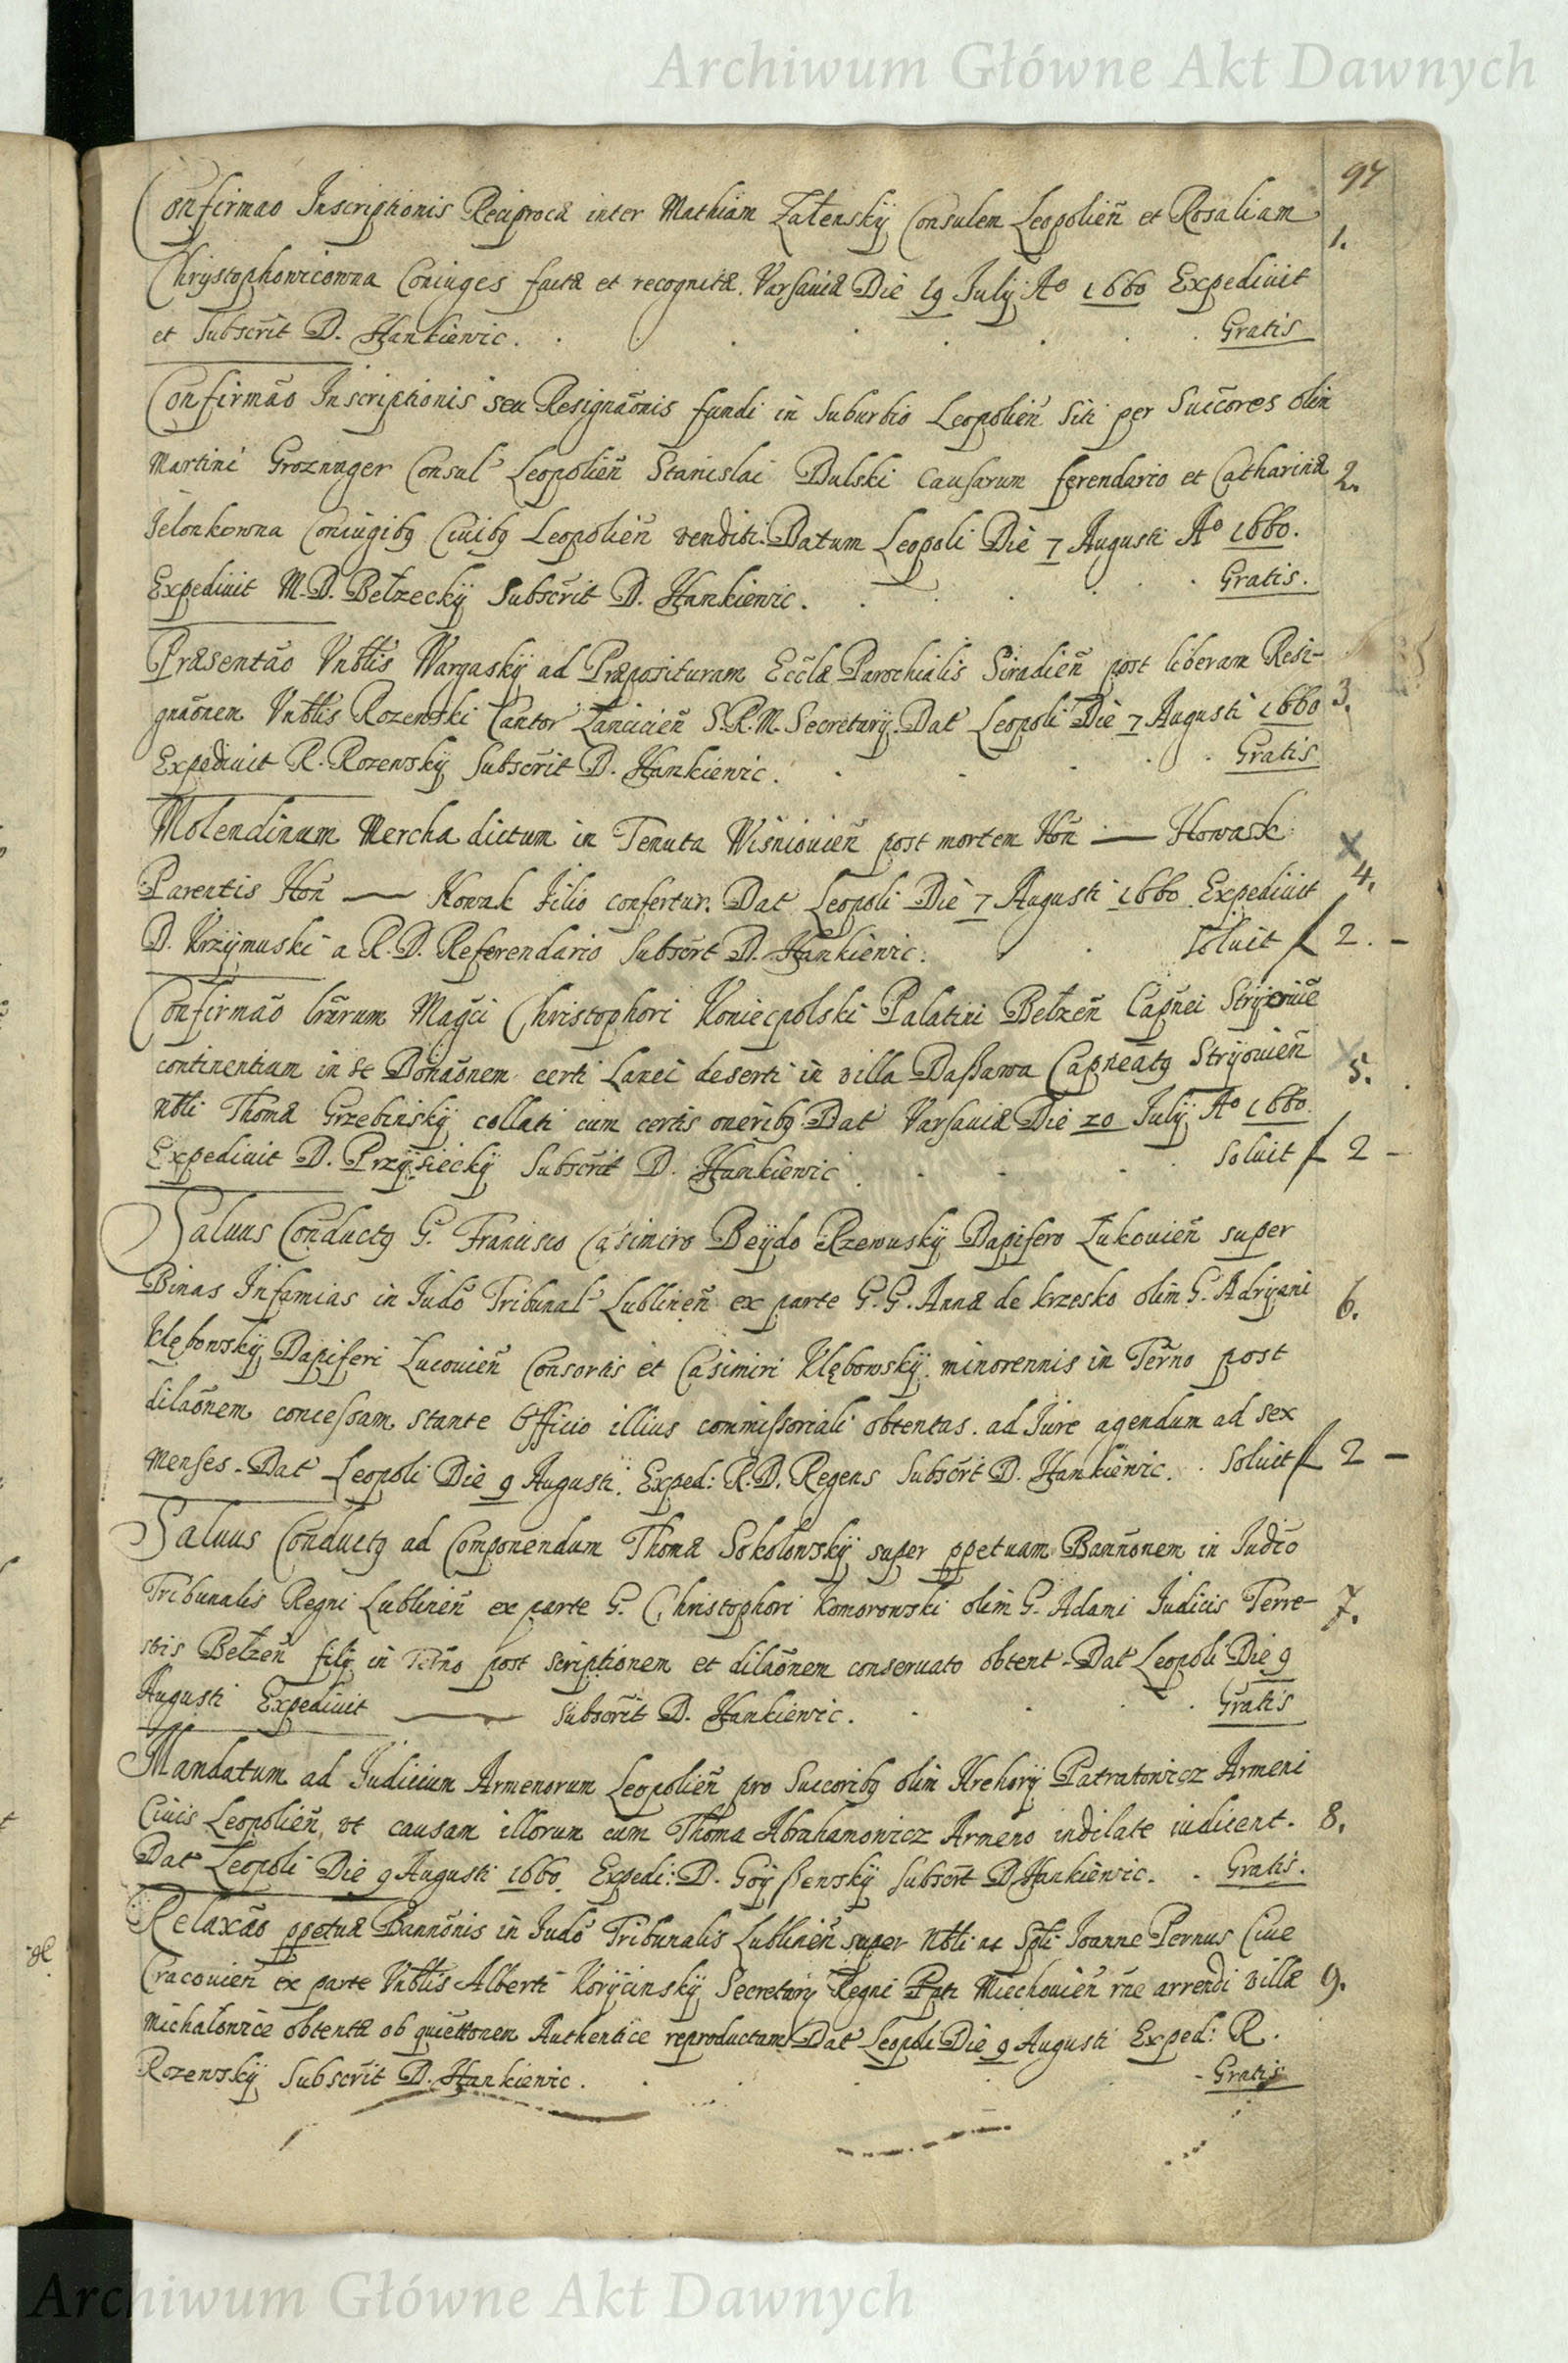 Archiwum Główne Akt Dawnych
97
Confirmao Inscriptionis Reciprocæ inter Mathiam Załenskÿ Consulem Leopolien̄ et Rosaliam 1.
Chrÿstophowicowna Coniuges factæ et recognitæ. Varsauiæ Die 19 Julÿ Aº 1660 Expediuit
et Subscr̄it D. Hankiewic. Gratis
Confirmāo Inscriptionis seu Resignaōnis fundi in Suburbio Leopolien̄ Siti per Suc̄cores olim
Martini Grozwager Consul Leopolien̄ Stanislai Dulski Causarum ferendario et Catharinæ 2.
Jelonkowna Coniugibꝫ Ciuibꝫ Leopolien̄ venditi. Datum Leopoli Die 7 Augusti Aº 1660.
Expediuit M. D. Bełzeckÿ Subscr̄it D. Hankiewic. Gratis.
Præsentāo Vnb̄lis Wargaskÿ ad Præposituram Ecc̄læ Parochialis Siradien̄ post liberam Resi-
gnaōnem Vnb̄lis Rozewski Cantor Łancicien̄ S. R. M. Secretarÿ. Dat Leopoli Die 7 Augusti 1660 3.
Expediuit R. Rozewskÿ Subscr̄it D. Hankiewic. Gratis
Molendinum Mercha dictum in Tenuta Wisniouien̄ post mortem Hon̄ — Howask
Parentis Hon̄ — Kowak filio confertur. Dat Leopoli Die 7 Augusti 1660 Expediuit 4.
D. Krzÿmuski a R. D. Referendario Subscr̄t D. Hankiewic. Soluit f 2. –
Confirmāo lr̄arum Mag̅ci Christophori Koniecpolski Palatini Bełzen̄ Cap̄nei Strÿ
continentium in se Donaōnem certi Lanei deserti in villa Daßawa Cap̄neatꝫ Strÿouien̄ 5.
Nb̄li Thomæ Grzebinskÿ collati cum certis oneribꝫ Dat Varsauiæ Die 20 Julÿ Aº 1660.
Expediuit D. Przÿsieckÿ Subscr̄it D. Hankiewic. Soluit f 2 –
Saluus Conductꝫ G. Francisco Casimiro Beÿdo Rzewuskÿ Dapifero Łukouien̄ super
Binas Infamias in Judō Tribunal Lublinen̄ ex parte G. G. Annæ de krzesko olim G. Adrÿani 6.
Kłębowskÿ Dapiferi Łucouien̄ Consortis et Casimiri Kłębowskÿ minorennis in Ter̄no post
dilaōnem conceßam stante Officio illius commißoriali obtentas. ad Jure agendum ad sex
menses. Dat Leopoli Die 9 Augusti. Exped: R. D. Regens Subscr̄it D. Hankiewic. Soluit f 2 –
Saluus Conductꝫ ad Componendum Thomæ Sokołowskÿ super ꝑpetuam Bannōnem in Judic̄o
Tribunalis Regni Lublinen̄ ex parte G. Christophori Komorowski olim G. Adami Judicis Terre- 7.
stris Bełzen̄ filÿ in Ter̄no post scriptionem et dilaōnem conseruato obtent. Dat Leopoli Die 9
Augusti Expediuit — Subscr̄it D. Hankiewic. Gratis
Mandatum ad Judicium Armenorum Leopolien̄ pro Succoribꝫ olim Hrehorÿ Patratowicz Armeni
Ciuis Leopolien̄, vt causam illorum cum Thoma Abrahamowicz Armeno indilate iudicent. 8.
Dat Leopoli Die 9 Augusti 1660. Expedi: D. Goÿßewskÿ Subscr̄t D. Hankiewic. Gratis.
Relaxāo ꝑpetuæ Bannōnis in Judō Tribunalis Lublinen̄ super Nb̄li ac Sp̄li Joanne Pernus Ciue
Cracouien̄ ex parte Vnb̄lis Alberti Korÿcinskÿ Secretarÿ Regni Pp̄ti Miechouien̄ rn̄e arrendi villæ 9.
Michałowice obtentæ ob quiettōnem Authentice reproductam Dat Leopoli Die 9 Augusti Exped: R.
Rozewskÿ Subscr̄it D. Hankiewic. Gratis
Archiwum Główne Akt Dawnych